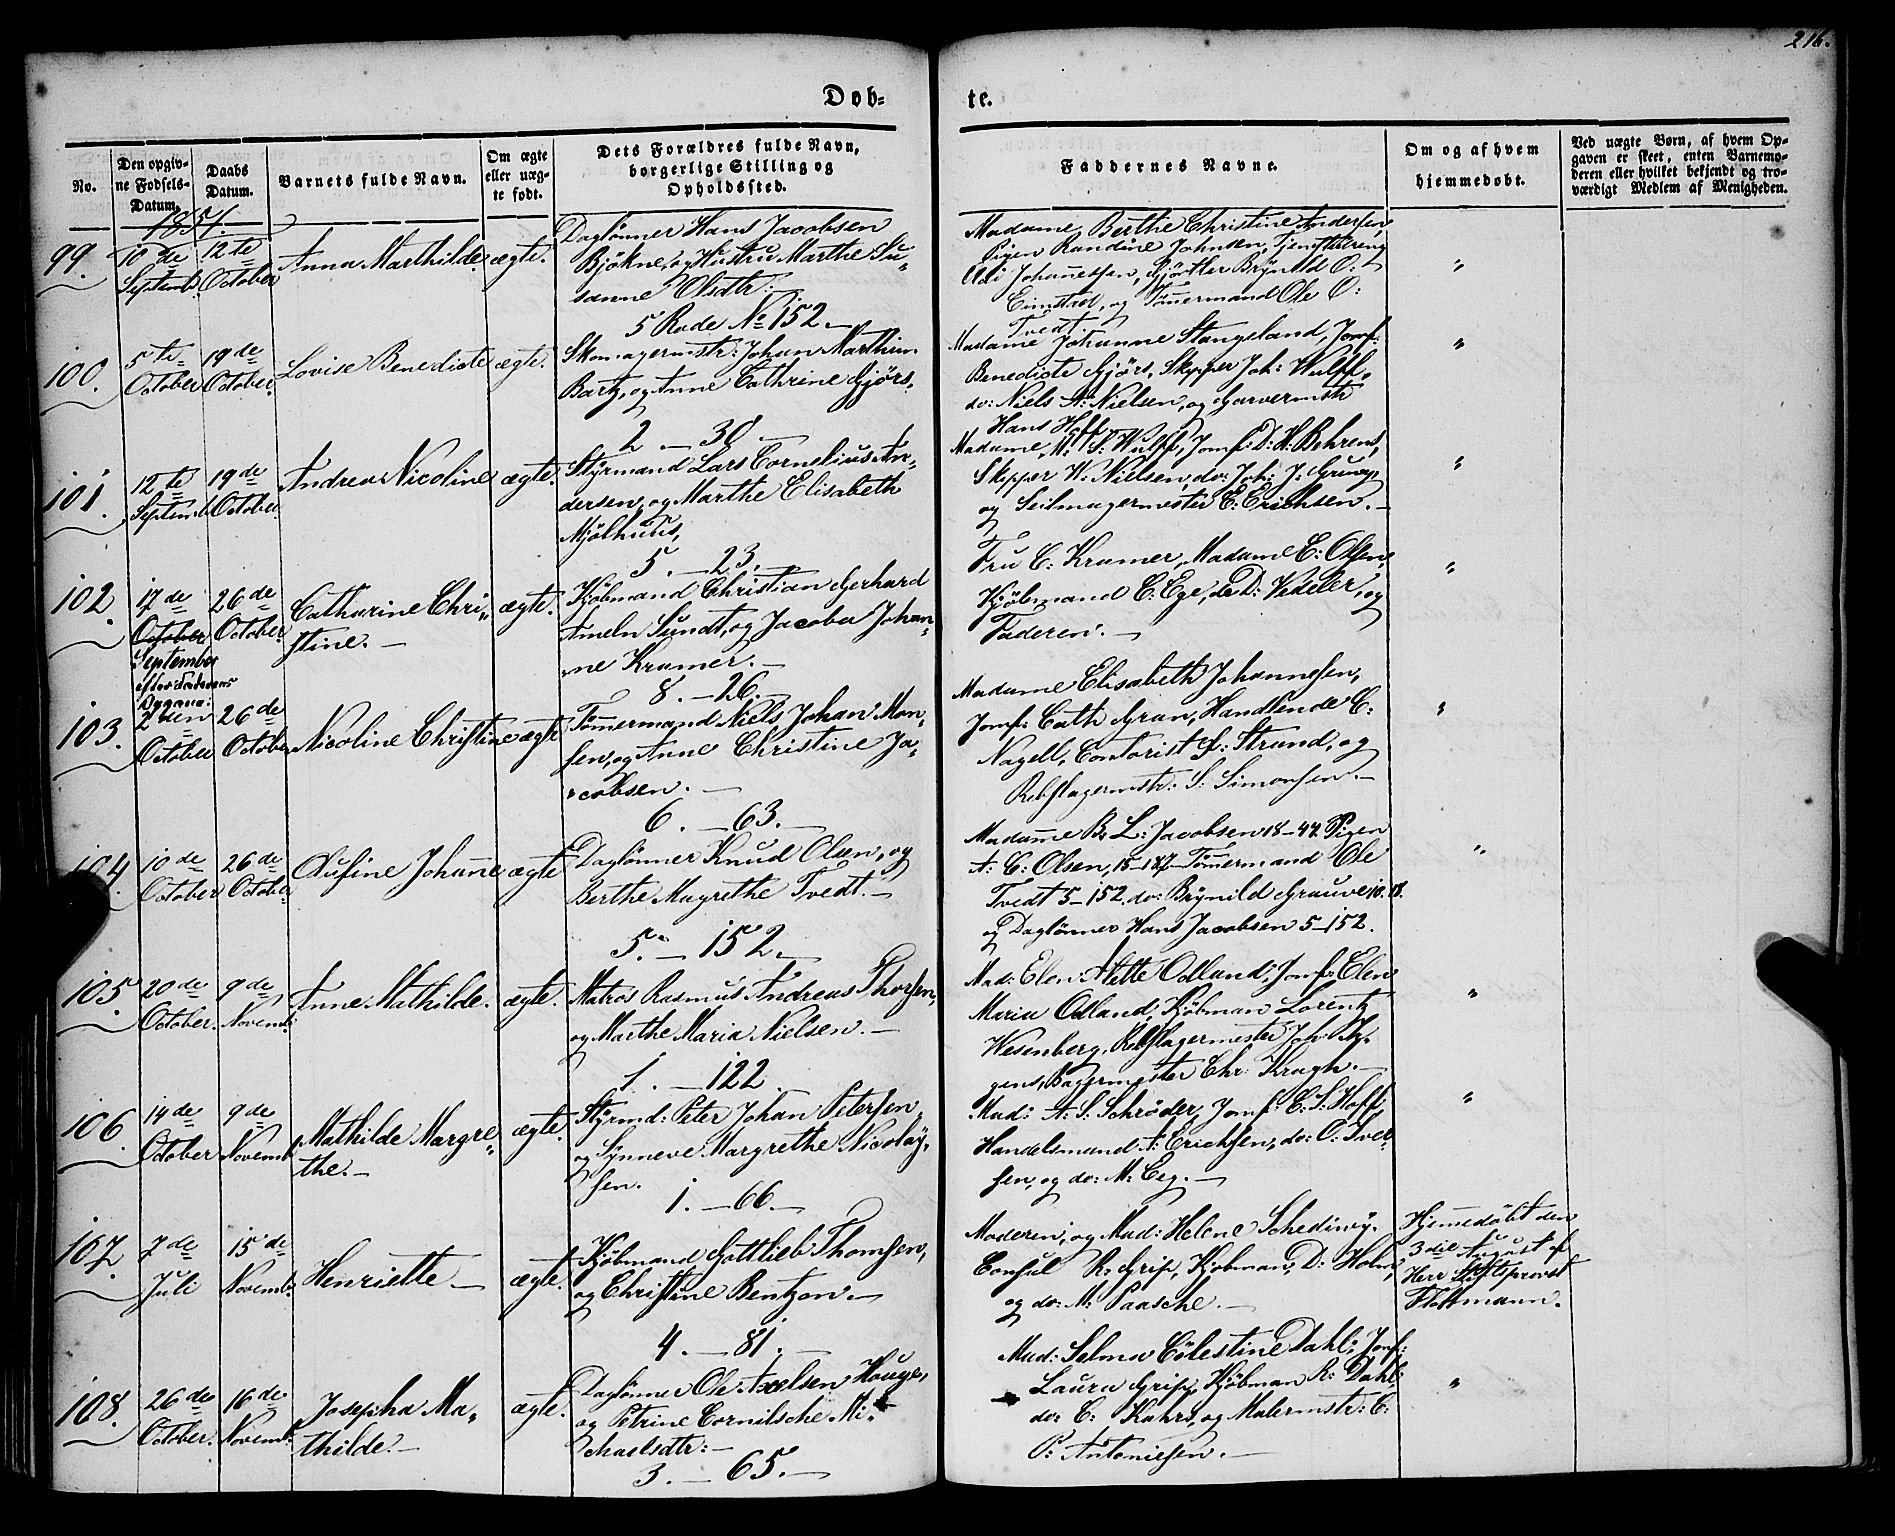 216.
Døb=
te.
No.
Den opgiv-
ne Fødsels-
Datum.
Daabs
Datum.
Barnets fulde Navn.
Om ægte
eller uæg-
te født.
Dets Forældres fulde Navn,
borgerlige Stilling og
Opholdssted.
Faddernes Navne.
Om og af hvem
hjemmedøbt.
Ved uægte Børn, af hvem Op-
gaven er skeet, enten Barnemo-
deren eller hvilket bekjendt og tro-
værdigt Medlem af Menigheden.
1851.
99.
10de
Septemb:
12te
October
Anna Marthilde.
ægte.
Daglønner Hans Jacobsen
Bjøkne, og Hustru Marthe Su=
sanne Olsdtr:
5 Rode No 152.
Madame Berthe Christine Andersen,
Pigen Randine Johnsen, Tjenstdreng
Adi Johannessen, Gjørtler Brynild O:
Eimstad, og Tømermand Ole O:
Tvedt.
"
100.
5te
October
19de
October.
Lovise Benedicte
ægte.
Skomagermstr: Johan Marthin
Bartz, og Anne Cathrine Gjørs.
2. — 30. —
Madame Johanne Stangeland, Jomf:
Benedicte Gjørs, Skipper Joh: Wulff,
do: Niels A: Nielsen, og Garvermstr
Hans Hoff.
"
101.
12te
Septemb
19de
October.
Andrea Nicoline
ægte.
Styrmand Lars Cornelius An=
dersen, og Marthe Elisabeth
Mjølhuus,
5. — 23. —
Madame M: S: Wulff, Jomf: D: H: Behrens,
Skipper W: Nielsen, do: Joh: J: Gruwy
og Seilmagermester E: Erichsen. —
"
102.
17de
October
September
efter Faderens
Opgave.
26de
October.
Catharine Chri=
stine. —
ægte.
Kjøbmand Christian Gerhard
Ameln Sundt, og Jacoba Johan=
ne Kramer. —
8. — 26. —
Fru C: Kramer, Madame E: Olsen,
Kjøbmand C: Ege, do D: Vedeler, og
Faderen. —
"
103.
2den
October
26de
October
Nicoline Christine
ægte
Tømermand Niels Johan Mon=
sen, og Anne Christine Ja=
cobsen. —
6. — 63. —
Madame Elisabeth Johannesen,
Jomf: Cath Gran, Handlende C:
Nagell, Contorist G: Strand, og
Rebslagermstr: S: Simonsen. —
"
104.
10de
October
26de
October
Ousine Johanne
ægte
Daglønner Knud Olsen, og
Berthe Magrethe Tvedt. —
5. — 152. —
Madame B: L: Jacobsen 18–44. Pigen
A: C: Olsen, 15–187 Tømermand Ole
Tvedt 5–152, do: Brynild Grauve 10. 18.
og Daglønner Hans Jacobsen 5–152.
"
105.
20de
October.
9de
Novemb:
Anne Mathilde.
ægte.
Matros Rasmus Andreas Thorsen,
og Marthe Maria Nielsen. —
1. — 122.
Mad: Elen Alette Odland, Jomf: Elen
Maria Odland, Kjøbman Lorentz
Wesenberg, Rebslagermester Joh:
gens, Bagermester Chr: Kragh. —
"
106.
14de
October
9de
Novemb
Mathilde Margre=
the. —
ægte.
Styrmd: Peter Johan Petersen,
og Synneve Margrethe Nicolay=
sen.
1. — 66. —
Mad: A: S: Schrøder, Jomf: C: S: Hoff,
Handelsmand A: Erichsen, do: O: Iver=
sen, og do: M: Eeg. —
"
107.
7de
Juli
15de
Novemb:
Henriette —
ægte.
Kjøbmand Gottlieb Thomsen,
og Christine Bentzon. —
4. — 81. —
Moderen, og Mad: Helene Scheding,
Consul R: Grip, Kjøbman, D: Holm,
og do: M: Paasche. —
Hjemmedøbt den
3die August af
Herr Stiftsprovst
Flottmann.
108.
26de
October.
16de
Novemb:
Josepha Ma=
thilde. —
ægte.
Daglønner Ole Axelsen Houge,
og Petrine Cornilsche Mi=
chaelsdtr: —
3. — 65. —
Mad: Selma Cølestine Dahl, Jomf:
Laura Grip, Kjøbman R: Dahl,
do: C: Kahrs, og Malermstr: C:
P: Antoniesen. —
"